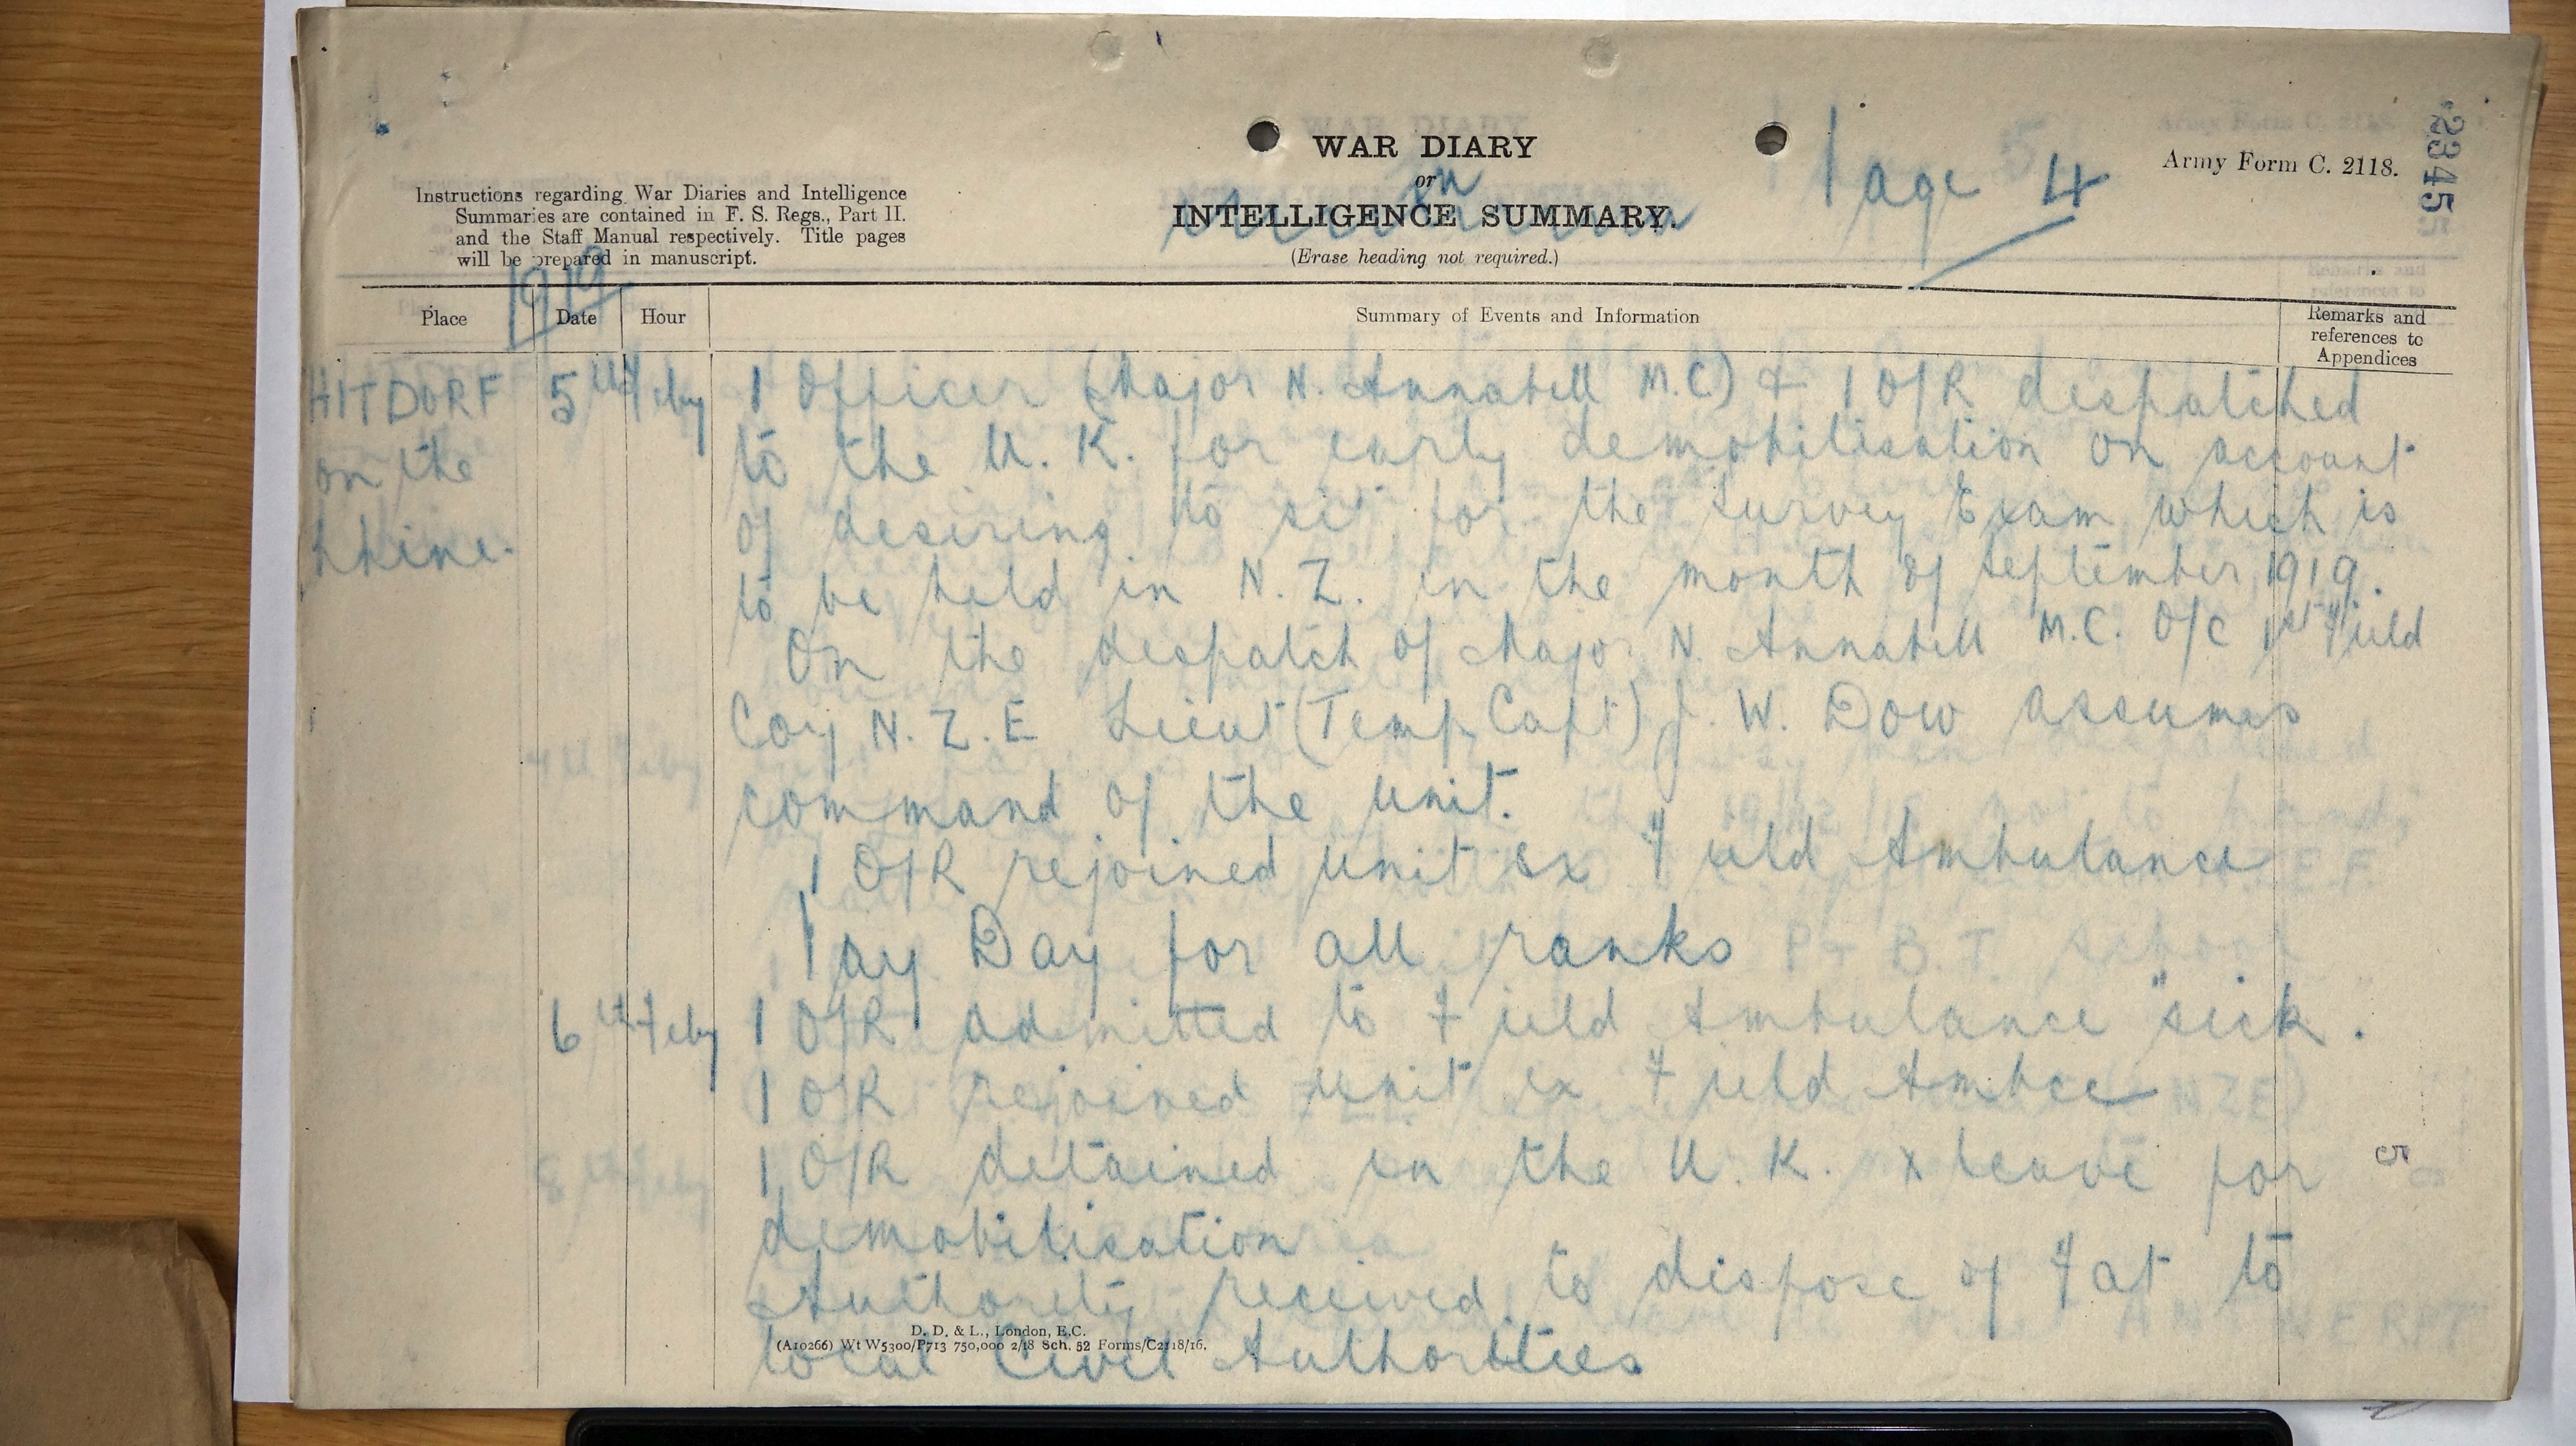 WAR DIARY
or
INTELLIGENCE SUMMARY.
(Erase heading not required.)
Page 4
Army Form C. 2118.
2345
Instructions regarding War Diaries and Intelligence
Summaries are contained in F. S. Regs., Part II.
and the Staff Manual respectively. Title pages
will be prepared in manuscript.
1919
Place Date Hour Summary of Events and Information Remarks and
references to
Appendices
HITDORF 5th Feby 1 Officer (Major N. Annabell M.C.) & 1 O/R despatched
on the to the U. K. for early demobilisation on account
Rhine. of desiring to sit for the Survey Exam which is
to be held in N. Z. in the month of September 1919.
On the despatch of Major N. Annabell M.C. O/C 1st Field
Coy N. Z. E Lieut (Temp Capt) J. W. Dow assumes
command of the unit.
1 O/R rejoined unit ex Field Ambulance
Pay Day for all ranks
6th Feby 1 O/R admitted to Field Ambulance "sick.
1 O/R rejoined unit ex Field Ambce
1 O/R detained in the U. K. x leave for
demobilisation
Authority received to dispose of Fat to
local Civil Authorities
5
D. D. & L., London, E.C.
(A10266) Wt W5300/P713 750,000 2/18 Sch. 52 Forms/C2118/16.